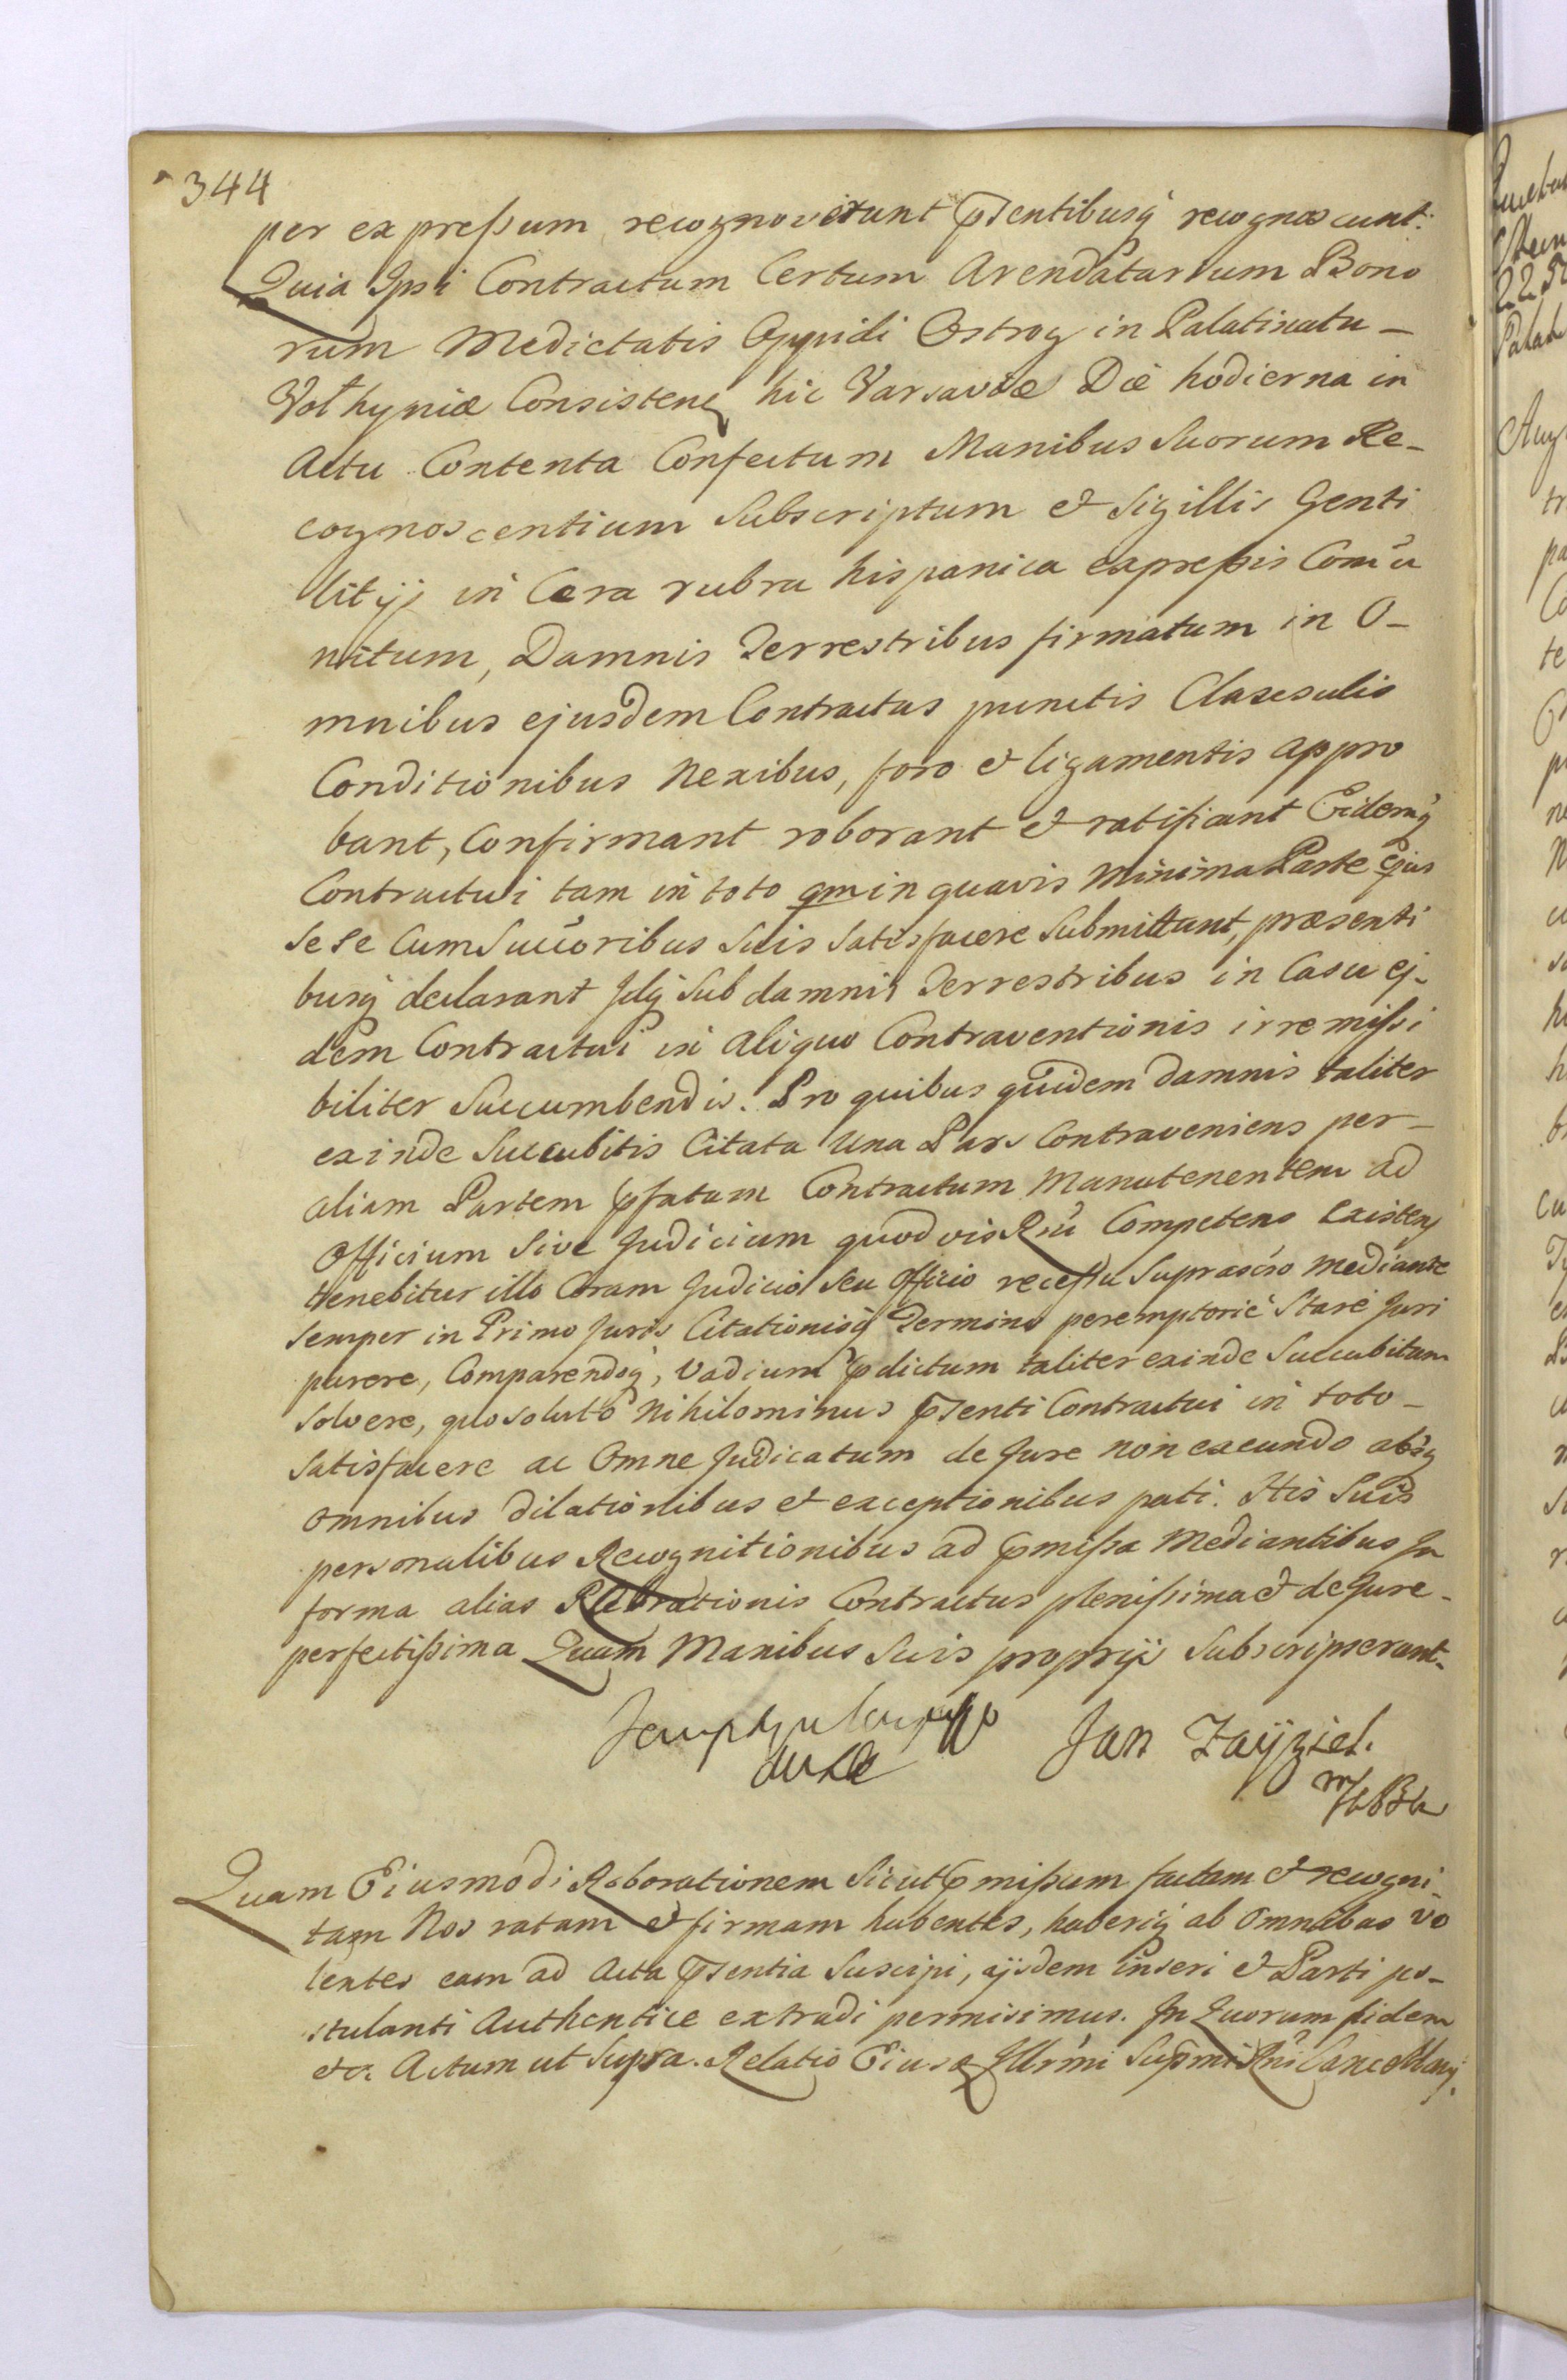 344
per expressum recognoverunt pñtentibusq́ recognoscunt:
Quia Ipsi Contractum Certum Arendatarium Bono
rum Medietatis Oppidi Ostrog in Palatinatu –
Volhyniæ Consisten hic Varsaviæ Die hodierna in
Actu Contenta Confectum Manibus Suorum Re–
cognoscentium Subscriptum et Sigillis Genti
litijs in Cera rubra hispanica expressis Comu
nitum, Damnis Terrestribus firmatum in O–
mnibus ejusdem Contractus punctis Clausulis
Conditionibus Nexibus, foro et ligamentis appro
bant, Confirmant roborant et ratificant Eidemq́
Contractui tam in toto qm in quavis Minima Parte Ejus
Sese Cum Succ̃oribus Suis Satisfacere Submittunt, præsenti
busq́ declarant Idq́ Sub damnis Terrestribus in Casu ej–
dem Contractui in aliquo Contraventionis irremissi
biliter Succumbendis. Pro quibus quidem damnis taliter
exinde Succubitis Citata Una Pars Contraveniens per–
aliam Partem pfatum Contractum Manutenentem ad
Officium Sive Judicium quodvis Rni Competens Existens
tenebitur illo Coram Judicio Seu Officio recessu Suprascr̃o mediante
Semper in Primo Juris Citationisq́ Termino peremptorie Stare Juri
parere, Comparendoq́, Vadium pdictum taliter exinde Succubitum
Solvere, quo soluto Nihilominus psenti Contractui in toto –
Satisfacere ac Omne Judicatum de Jure non exeundo absq́
omnibus dilationibus et exceptionibus pati. Htis Suis
personalibus Recognitionibus ad pmissa Mediantibus In
forma alias Roborationis Contractus plenissima et de Jure –
perfectissima Quam Manibus Suis proprijs Subscripserunt.
Jan Zayziel.
Quam Eiusmodi Roborationem Sicut pmissum factam et recogni–
tam Nos ratam et firmam habentes, haberiq́ ab Omnibus vo
lentes eam ad Acta psentia Suscipi, ijsdem inseri et Parti po–
stulanti Authentice extradi permisimus. In Quorum fidem
etc. Actum ut Supra. Relatio Eiusq Illr̃mi Suprmi Rni Cancellarij.